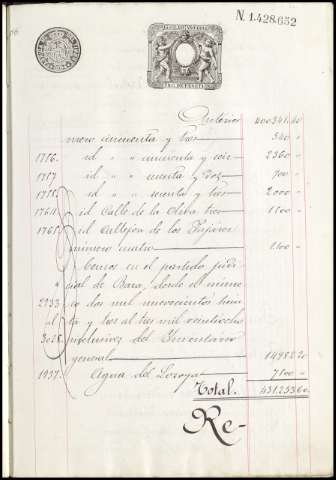 N. 1.428.652
Anterior 400341.40
mero cincuenta y tres 540 "
1756. id " " cincuenta y seis 2360 "
1757 id " " sesenta y dos 700 "
1758. id " " sesenta y tres 2000 "
1764. id Calle de la Oliva tres 1100 "
1765. id Callejon de los
número cuatro 1100 "
Censos en el partido judi-
cial de Baza, desde el número
2933 dos mil novecientos trein
al ta y tres al tres mil veintiocho
3028 inclusives del Inventario
general 14952.20
1937. Agua del Lozoya 7100 "
Total. 431.233.60
Re-